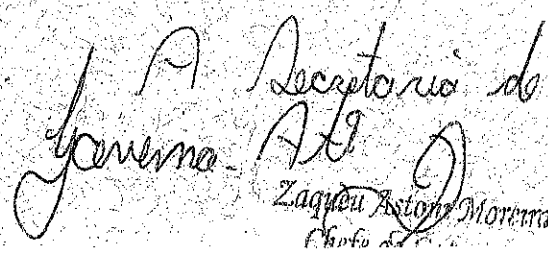 A Secretaria de
Governo - 
Zaqueu Astoni Moreira
Chefe de